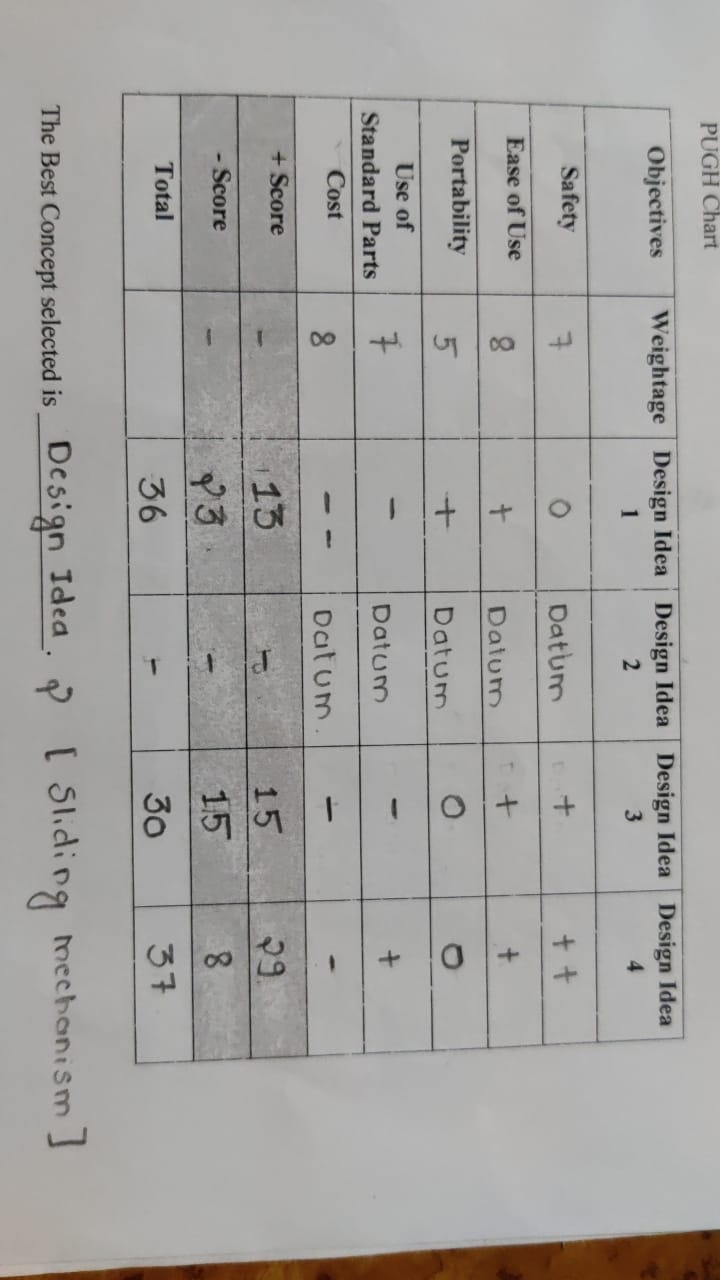 PUGH Chart
Objectives Weightage Design Idea 1 Design Idea 2 Design Idea 3 Design Idea 4
Safety 7 0 Datum + ++
Ease of Use 8 + Datum + +
Portability 5 + Datum 0 0
Use of Standard Parts 7 - Datum - +
Cost 8 -- Datum. - -
+ Score - 13 - 15 29
- Score - 23 - 15 8
Total 36 - 30 37
The Best Concept selected is Design Idea. 2 [Sliding mechanism]